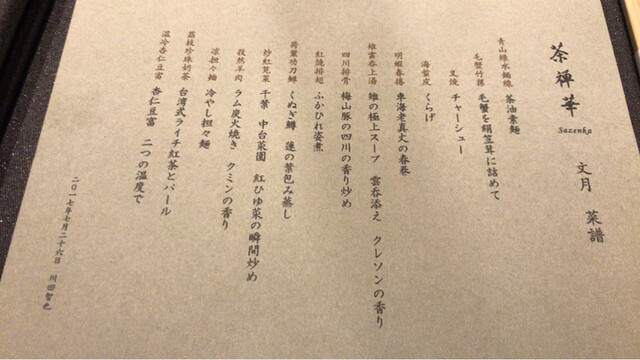 茶禅華
Sazenka
文月 菜譜
青山緑水麺線 茶油素麺
毛蟹竹蓀 毛蟹を絹笠茸に詰めて
叉焼 チャーシュー
海蜇皮 くらげ
明蝦春捲 車海老真丈の春巻
雉雲呑上湯 雉の極上スープ 雲呑添え クレソンの香り
四川排骨 梅山豚の四川の香り炒め
紅焼排翅 ふかひれ姿煮
荷葉功刀鱒 くぬぎ鱒 蓮の葉包み蒸し
炒紅莧菜 千葉 中台菜園 紅ひゆ菜の瞬間炒め
孜然羊肉 ラム炭火焼き クミンの香り
涼担々麺 冷やし担々麺
茘枝珍珠奶茶 台湾式ライチ紅茶とパール
温冷杏仁豆富 杏仁豆富 二つの温度で
二〇一七年七月二十六日 川田智也